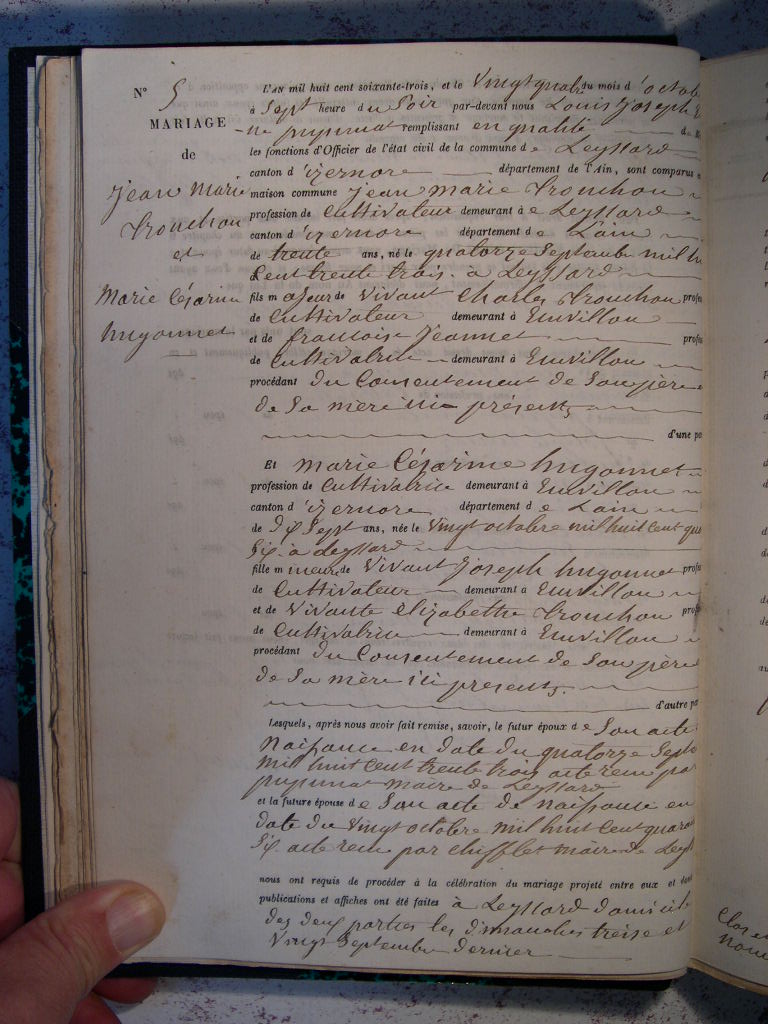 N° 5
MARIAGE
de
Jean Marie
Trouchon
et
Marie Césarine
hugonnet
L'AN mil huit cent soixante-trois, et le Vingt quatre du mois d'octob
à Sept heure du Soir par-devant nous Louis Joseph
puginat remplissant en qualité d
les fonctions d'Officier de l'état civil de la commune de Leyssard
canton d'izernore département de l'Ain, sont comparus
maison commune Jean marie Trouchon
profession de Cultivateur demeurant à Leyssard
canton d'izernore département de L'ain
de trente ans, né le quatorze Septembre mil h
Cent trente trois à Leyssard
fils majeur de Vivant Charles Trouchon profe
de Cultivateur demeurant à Emvillou
et de francoise Jeannet profe
de Cultivatrice demeurant à Emvillou
procédant du Consentement de Son père
de Sa mère ici présents
d'une pa
Et marie Césarine hugonnet
profession de Cultivatrice demeurant à Emvillou
canton d'izernore département de L'ain
de dix Sept ans, née le Vingt octobre mil huit Cent qua
Six à Leyssard
fille mineure de Vivant Joseph hugonnet profe
de Cultivateur demeurant à Emvillou
et de Vivante élizabeth Trouchon prof
de Cultivatrice demeurant à Emvillou
procédant du Consentement de Son père
de Sa mère ici presents
d'autre pa
Lesquels, après nous avoir fait remise, savoir, le futur époux de Son acte
Naissance en date du quatorze Sept
mil huit Cent trente trois acte recu par
puginat maire de Leyssard
et la future épouse de Son acte de naissance en
date du Vingt octobre mil huit Cent quaran
Six acte recu par chifflet maire de Leyss
nous ont requis de procéder à la célébration du mariage projeté entre eux et dont
publications et affiches ont été faites à Leyssard domicile
des deux parties les dimanches treise et
Vingt Septembre dernier